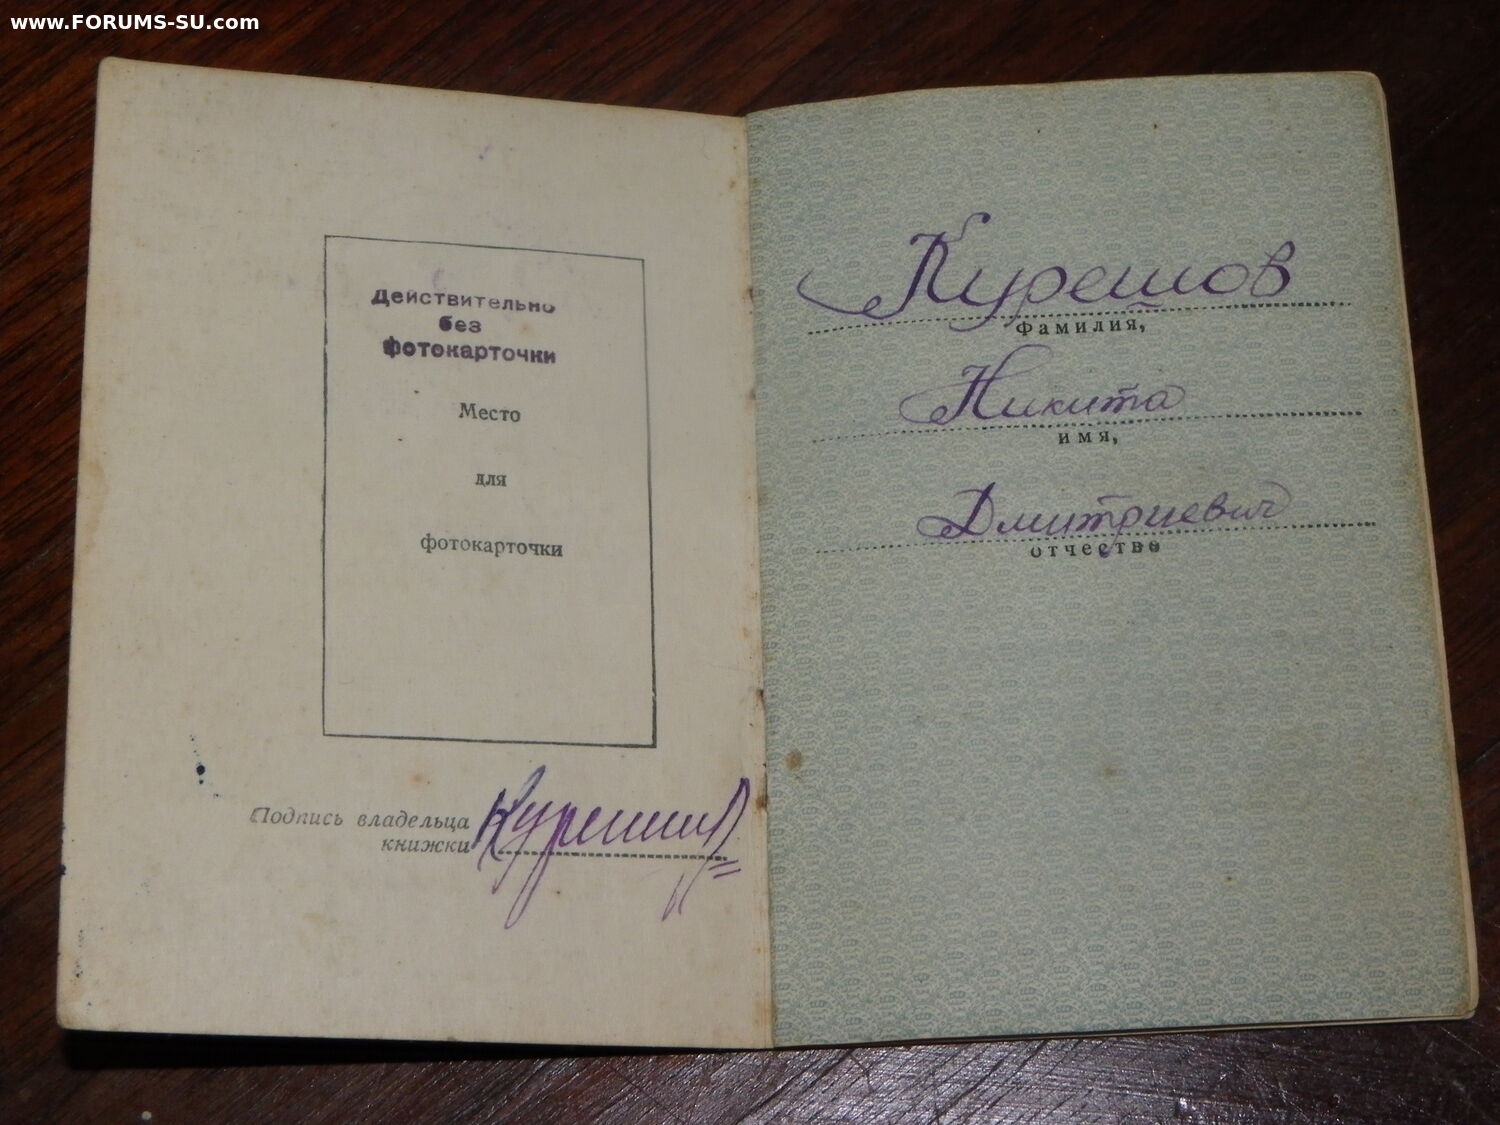 www.FORUMS-SU.com
Действительно
без
фотокарточки
Место
для
фотокарточки
Подпись владельца
книжки
Курешов
фамилия,
Никита
имя,
Дмитриевич
отчество